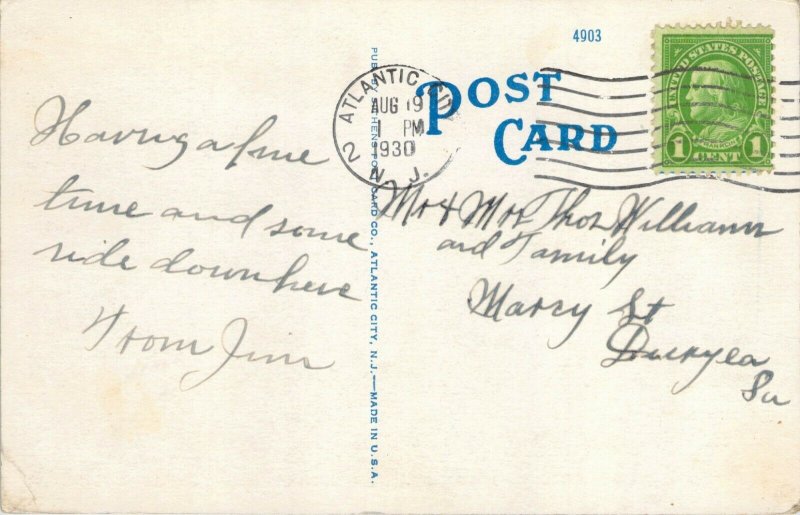 Having a fine
time and some
ride down here
From Jim
PUBLISHED ATHENS POST CARD CO., ATLANTIC CITY, N.J.—MADE IN U.S.A.
4903
POST
CARD
ATLANTIC CITY
AUG 19
1 PM
1930
2 N. J.
UNITED STATES POSTAGE
FRANKLIN
1 CENT 1
Mr & Mrs Thos Williams
and Family
Marcy St
Duryea
Pa